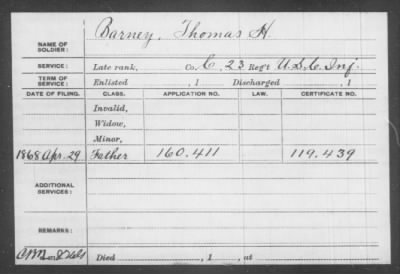 Barney, Thomas H.
NAME OF SOLDIER:
SERVICE: Late rank, Co. C, 23 Reg't U.S.C. Inf.
TERM OF SERVICE: Enlisted , 1 Discharged , 1
DATE OF FILING. CLASS. APPLICATION NO. LAW. CERTIFICATE NO.
Invalid,
Widow,
Minor,
1868 Apr. 29 Father 160.411 119.439
ADDITIONAL SERVICES:
REMARKS:
Died , 1 , at